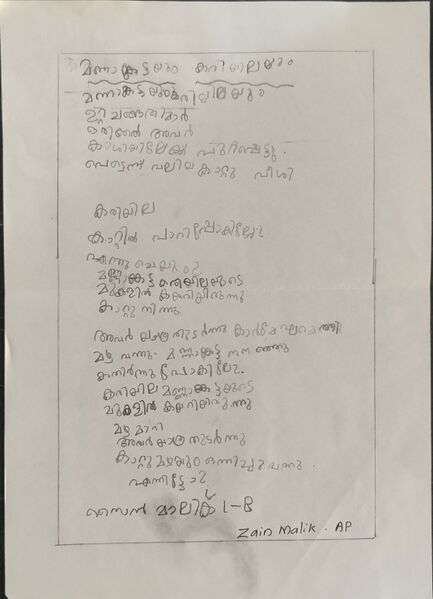 മണ്ണാങ്കട്ടയും കരിയിലയും
മണ്ണാങ്കട്ടയും കരിയിലയും
ഉറ്റ ചങ്ങാതിമാർ
ഒരിക്കൽ അവർ
കാശിയിലേക്ക് പുറപ്പെട്ടു.
പെട്ടെന്ന് വലിയ കാറ്റു വീശി
കരിയില
കാറ്റിൽ പാറിപ്പോകില്ലേ?
എന്തു ചെയ്യും?
മണ്ണാങ്കട്ട കരിയിലയുടെ
മുകളിൽ കയറിയിരുന്നു
കാറ്റു നിന്നു
അവർ യാത്ര തുടർന്നു കാർമേഘമെത്തി
മഴ വന്നു. മണ്ണാങ്കട്ട നനഞ്ഞു
കുതിർന്നു പോകില്ലേ.
കരിയില മണ്ണാങ്കട്ടയുടെ
മുകളിൽ കയറിയിരുന്നു
മഴ മാറി
അവർ യാത്ര തുടർന്നു
കാറ്റു മഴയും ഒന്നിച്ചു വന്നു.
എന്നിട്ടോ?
സൈൻ മാലിക് 1-B
Zain Malik . AP